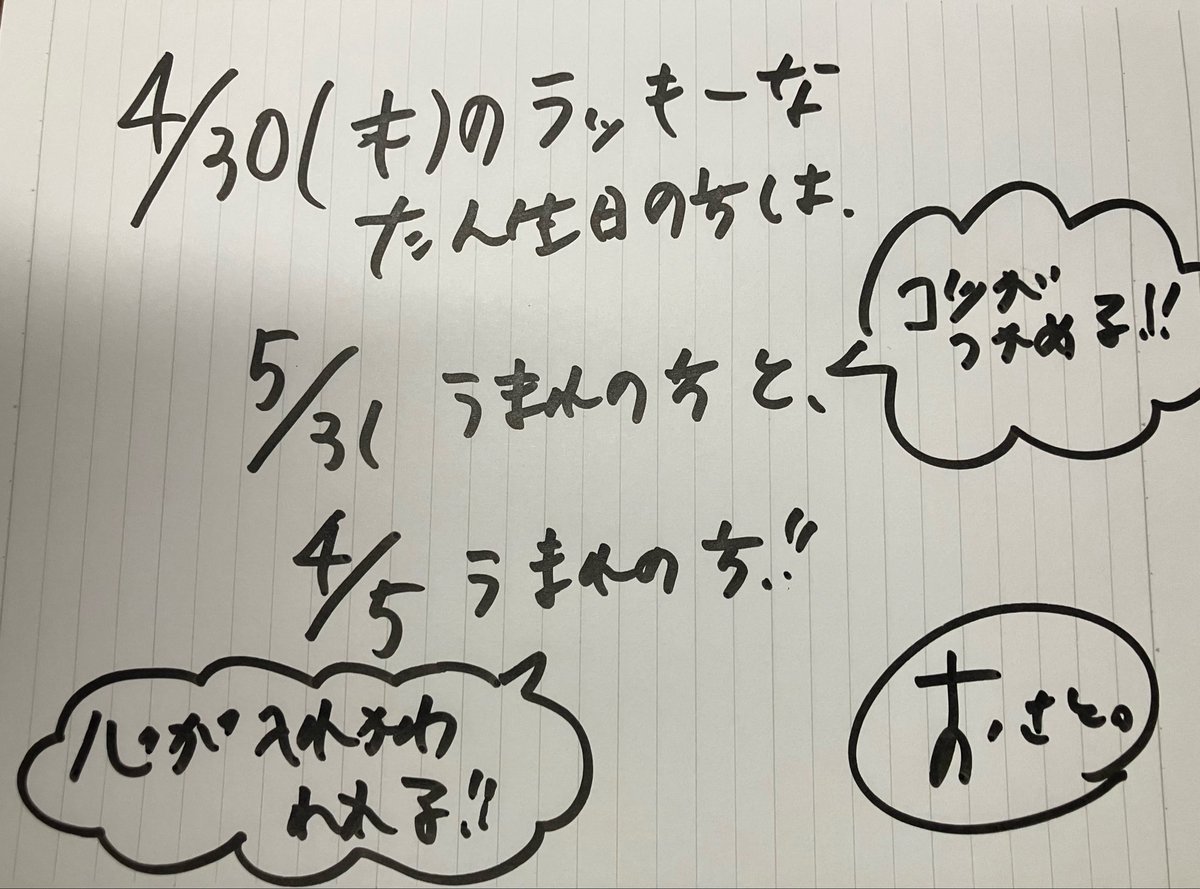 4/30(木)のラッキーな
たん生日の方々は、
コツが
つかめる!!
5/31 うまれの方と、
4/5 うまれの方!!
心が入れかわ
れる!!
おさとの